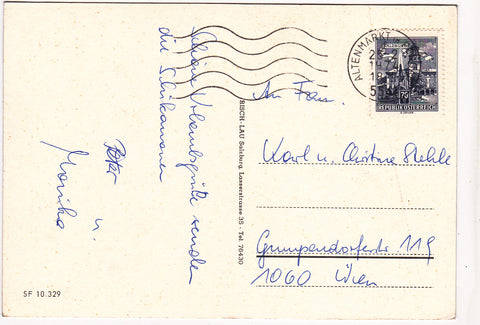 Schöne Urlaubsgrüße senden
die Schikanonen
Peter
u.
Monika
SF 10.329
RISCH-LAU Salzburg, Lasserstrasse 35 - Tel. 76430
ALTENMARKT
REPUBLIK ÖSTERREICH
An Fam.
Karl u. Christine Stehle
Gumpendorferstr. 119
1060 Wien